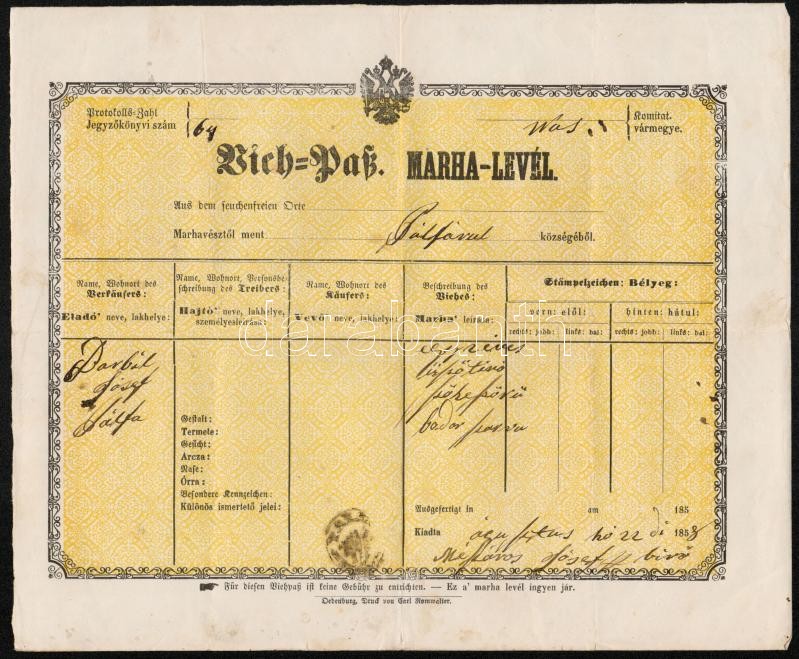 Protokolls-Zahl
Jegyzőkönyvi szám
64
Vas
Komitat.
vármegye.
Vieh=Paß. MARHA-LEVÉL.
Aus dem seuchenfreien Orte
Marhavésztől ment Pálfárul községéből.
Name, Wohnort des Verkäufers:
Eladó' neve, lakhelye:
Name, Wohnort, Personsbe-
schreibung des Treibers:
Hajtó' neve, lakhelye,
személyesleirása:
Name, Wohnort des Käufers:
Vevő' neve, lakhelye:
Beschreibung des Viehes:
Marha' leirása:
Stämpelzeichen: Bélyeg:
vorn: elől:
hinten: hátul:
rechts: jobb:
links: bal:
rechts: jobb:
links: bal:
Barbál
Josef
Pálfa
Gestalt:
Termete:
Gesicht:
Arcza:
Nase:
Órra:
Besondere Kennzeichen:
Különös ismertető jelei:
egy éves
üsző tinó
szőke szőrü
Ausgefertigt in am 185
Kiadta águstus hó 22 di 1858
Mészáros József biró
Für diesen Viehpaß ist keine Gebühr zu entrichten. — Ez a' marha levél ingyen jár.
Oedenburg, Druck von Carl Romwalter.
darabanth